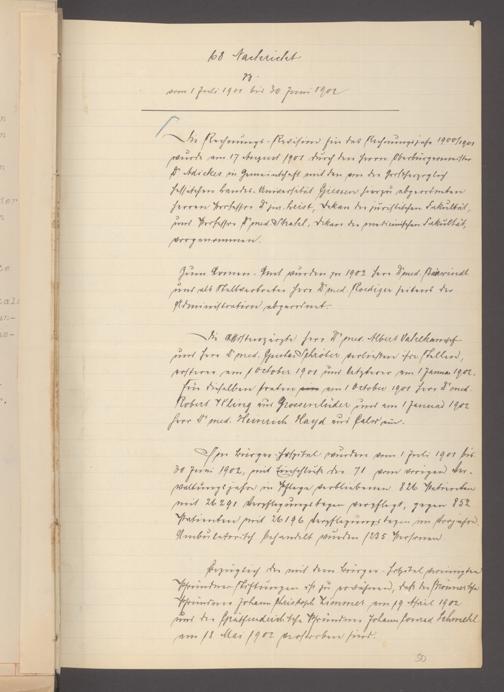 68 Nachricht
vom 1 Juli 1901 bis 30 Juni 1902
Die Rechnungs-Revision für das Rechnungsjahr 1900/1901
wurde am 17 August 1901 durch den Herrn Oberbürgermeister
Dr Adickes in Gemeinschaft mit den von der Großherzoglich
hessischen Landes-Universität Giessen hierzu abgeordneten
Herren Professor Dr jur. Leist, Dekan der juristischen Fakultät,
und Professor Dr med. Strahl, Dekan der medicinischen Fakultät,
vorgenommen.
Zum wurden pr 1902 Herr Dr med.
und als Stellvertreter Herr Dr med. Roediger seitens der
Administration abgeordnet.
Die Assistenzärzte Herr Dr med. Albert Vahlkampf
und Herr Dr med. Gustav Schröder verließen ihre Stellen,
ersterer am 1 October 1901 und letzterer am 1 Januar 1902.
Für dieselben traten am 1 October 1901 Herr Dr med.
Robert Kling aus Grossenlüder und am 1 Januar 1902
Herr Dr med. Heinrich Hayd aus ein.
Im Bürger-Hospital wurden vom 1 Juli 1901 bis
30 Juni 1902, mit Einschluß der 71 vom vorigen Ver-
waltungsjahre in Pflege verbliebenen 826 Patienten
mit 26291 Verpflegungstagen verpflegt, gegen 852
Patienten mit 26196 Verpflegungstagen im Vorjahre.
Ambulatorisch behandelt wurden 1235 Personen.
Bezüglich der mit dem Bürger-Hospital vereinigten
Pfründner Stiftungen ist zu erwähnen, daß der
Pfründner Johann Christoph Zimmer am 19 April 1902
und der Pfründner Johann Conrad
am 18 Mai 1902 verstorben sind.
50